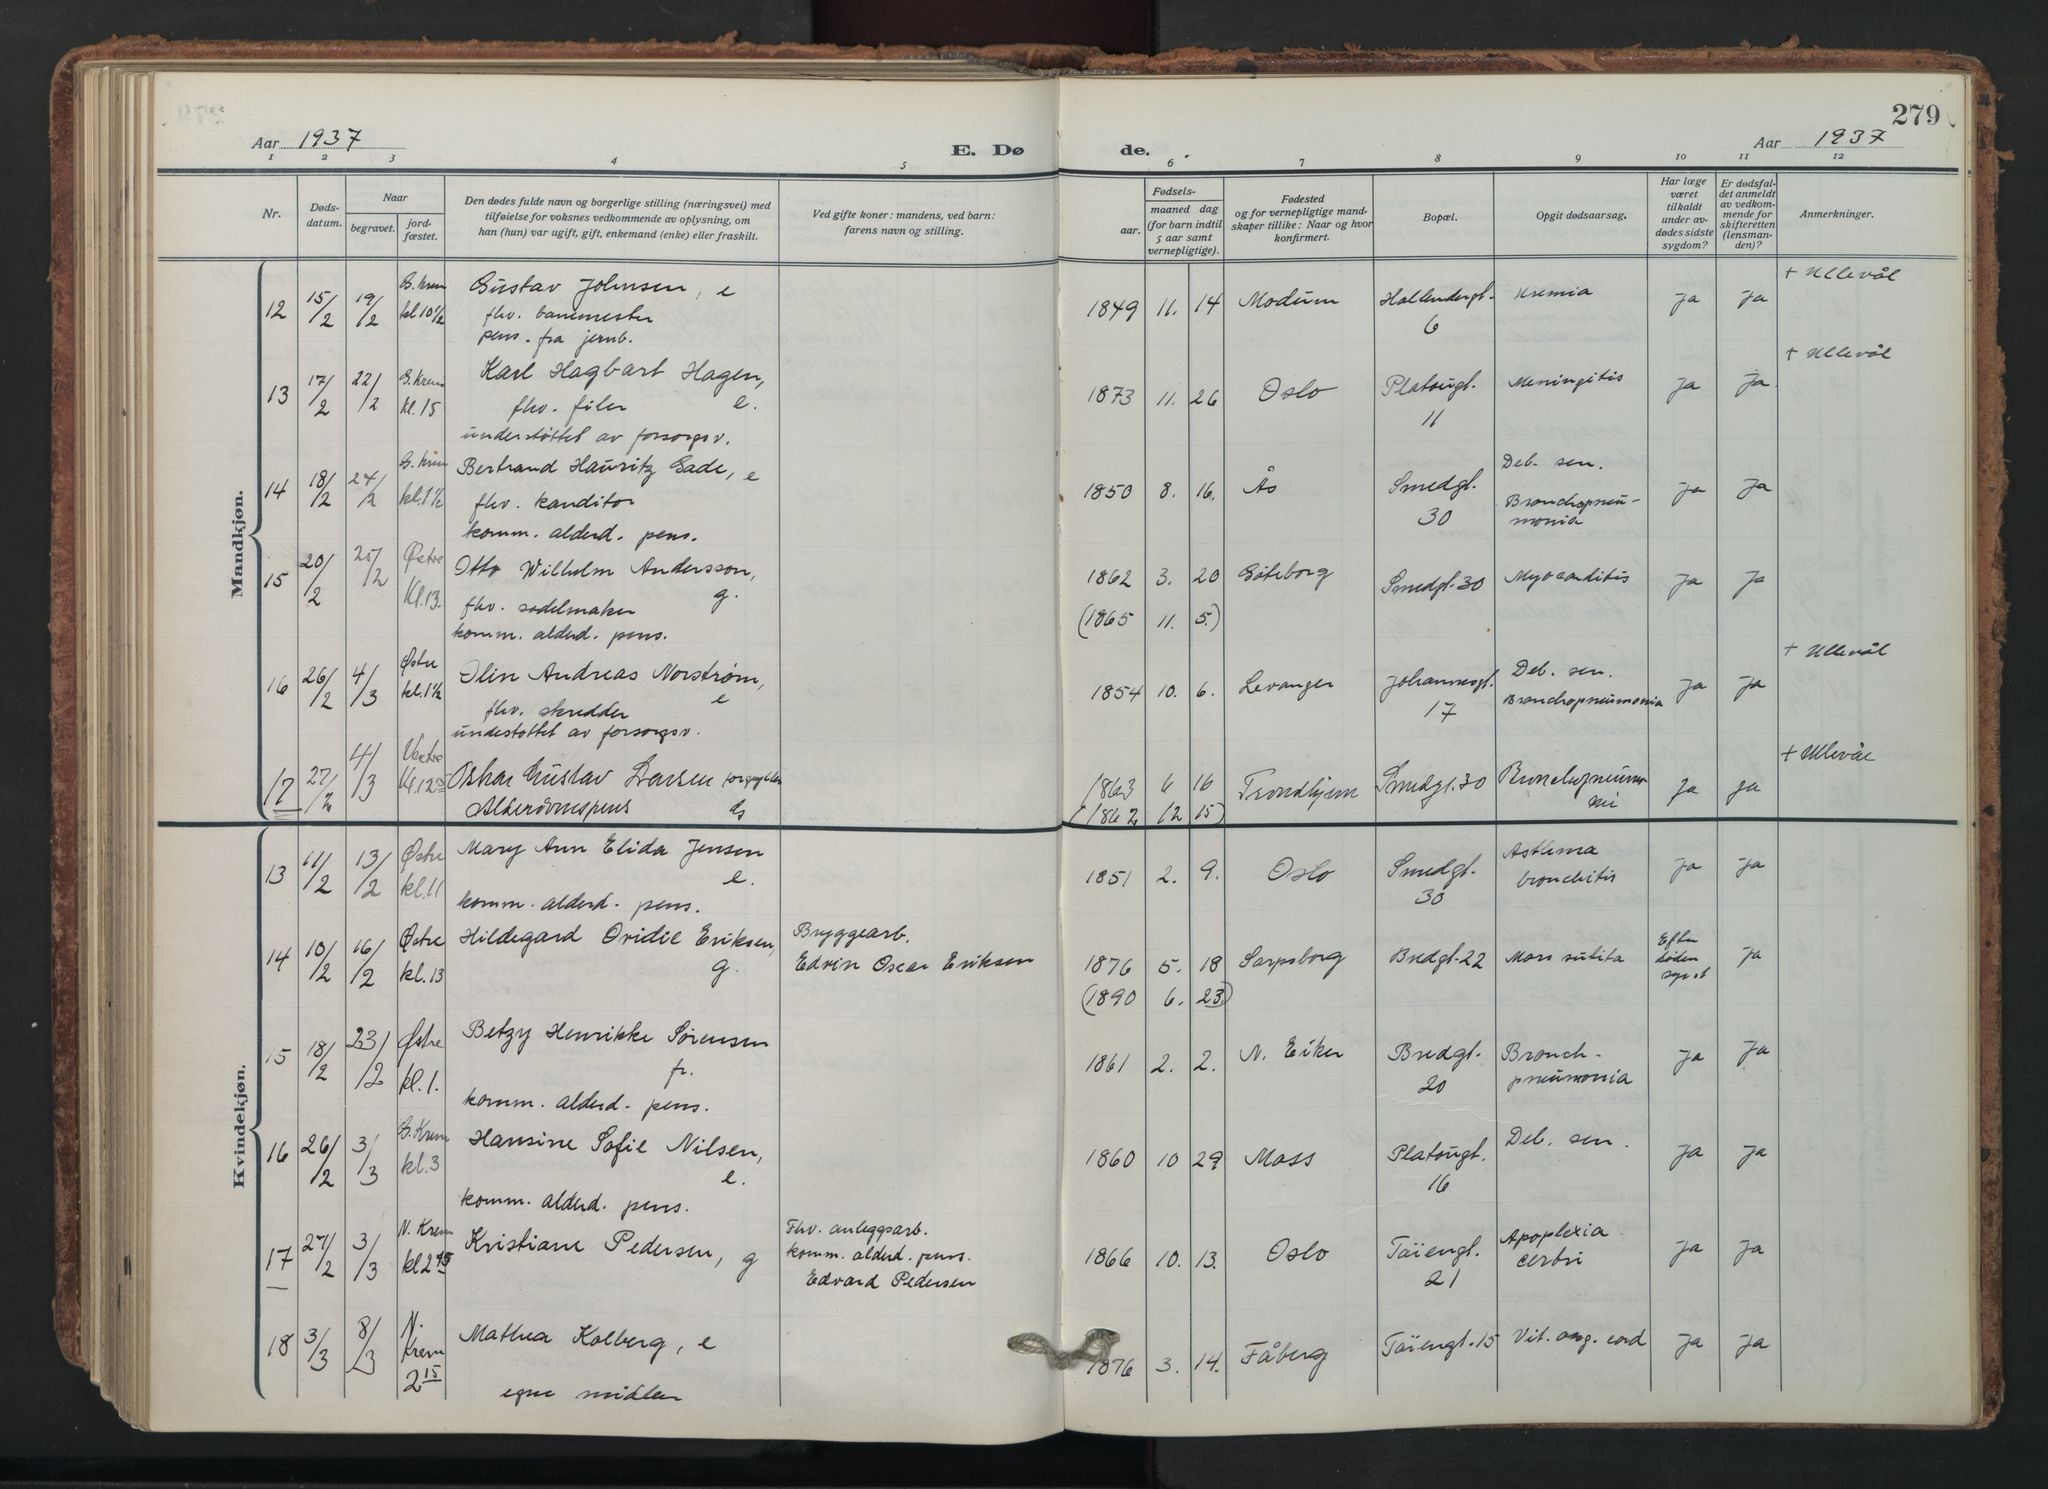 279
Aar 1937
E. Dø
de.
Aar 1937
1 2 3 4 5 6 7 8 9 10 11 12
Nr.
Døds-
datum.
Naar
begravet.
jord-
fæstet.
Den dødes fulde navn og borgerlige stilling (næringsvei) med
tilføielse for voksnes vedkommende av oplysning, om
han (hun) var ugift, gift, enkemand (enke) eller fraskilt.
Ved gifte koner: mandens, ved barn:
farens navn og stilling.
Fødsels-
aar.
maaned dag
(for barn indtil
5 aar samt
vernepligtige).
Fødested
og for vernepligtige mand-
skaper tillike: Naar og hvor
konfirmert.
Bopæl.
Opgit dødsaarsag.
Har læge
været
tilkaldt
under av-
dødes sidste
sygdom?
Er dødsfal-
det anmeldt
av vedkom-
mende for
skifteretten
(lensman-
den)?
Anmerkninger.
Mandkjøn.
12 15/2 19/2 G. Krem kl 10 1/2 Gustav Johnsen, e
fhv. banemester
pens. fra jernb.
1849 11. 14 Modum Hollendergt. 6 Uremia ja ja + Ullevål
13 17/2 22/2 G. Krem kl. 15 Karl Hagbart Hagen, e.
fhv. filer
understöttet av forsorgsv.
1873 11. 26 Oslo Platougt. 11 Meningitis ja ja + Ullevål
14 18/2 24/2 G. Krem kl. 1 1/2 Bertrand Hauritz Gade, e
fhv. kanditor
komm. alderd. pens.
1850 8. 16. Ås Smedgt. 30 Deb. sen. Bronchopneu-
monia ja ja
15 20/2 25/2 Østre Kl. 13. Otto Wilhelm Andersson, g.
fhv. sadelmaker
komm. alderd. pens.
1862 3. 20 Göteborg Smedgt. 30 Myocarditis ja ja
(1865 11. 5.)
16 26/2 4/3 Østre kl. 1 1/2 Olin Andreas Norstrøm, e
fhv. skredder
undestøttet av forsorgsv.
1854 10. 6. Levanger Johannesgt. 17 Deb. sen. Bronchopneumonia ja ja + Ullevål
17 27/2 4/3 Vestre Kl. 12 Oskar Gustav Larsen
Alderdomspens
1863 6 16 Trondhjem Smedgt. 30 ja ja + Ullevål
(1862 12 15)
Kvindekjøn.
13 11/2 13/2 Østre kl. 11 Mary Ann Elida Jensen e.
komm. alderd. pens.
1851 2. 9. Oslo Smedgt. 30 Asthma bronchitis ja ja
14 10/2 16/2 Østre kl. 13 Hildegard Ovidie Eriksen, g.
Bryggearb.
Edvin Oscar Eriksen
1876 5. 18 Sarpsborg Bredgt. 22 Mors subita Efter døden ja
(1890 6. 23.)
15 18/2 23/2 Østre kl. 1. Betzy Henrikke Sørensen fr.
komm. alderd. pens.
1861 2. 2. N. Eiker Bredgt. 20 Bronch-
pneumonia ja ja
16 26/2 3/3 G. Krem kl. 3 Hansine Sofie Nilsen, e.
komm. alderd. pens.
1860 10 29 Moss Platougt. 16 Deb. sen. ja ja
17 27/2 3/3 N. Krem kl 2 45 Kristiane Pedersen, g
Fhv. anleggsarb.
komm. alderd. pens.
Edvard Pedersen
1866 10. 13. Oslo Töiengt. 21 Apoplexia cerbri ja ja
18 3/3 8/3 N. Krem 2 15 Mathea Kolberg, e
egne midler
1876 3. 14. Fåberg Töiengt. 15 Vit. org. cord ja ja